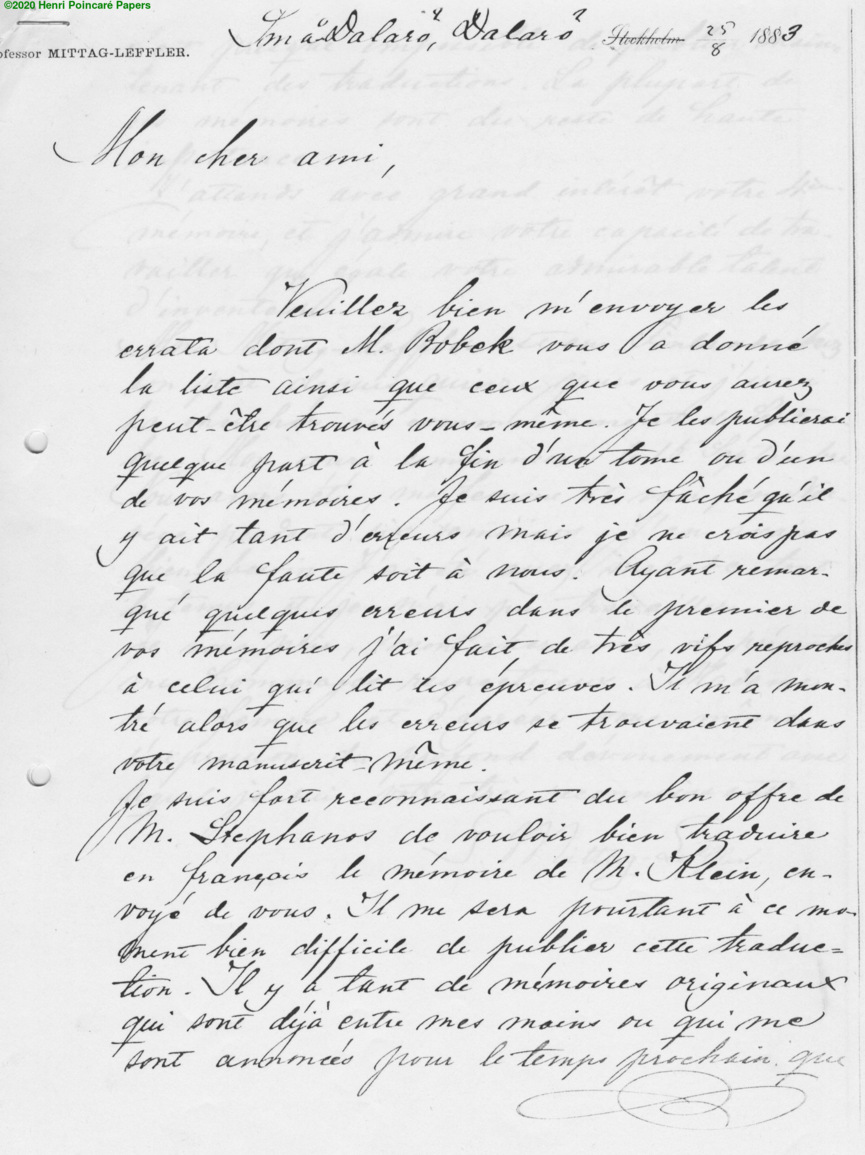 ©2020 Henri Poincaré Papers
Små Dalarö, Dalarö Stockholm 25/8 1883
ofessor MITTAG-LEFFLER.
Mon cher ami,
Veuillez bien m'envoyer les
errata dont M. Bobek vous a donné
la liste ainsi que ceux que vous aurez
peut-être trouvés vous-même. Je les publierai
quelque part à la fin d'un tome ou d'un
de vos mémoires. Je suis très fâché qu'il
y ait tant d'erreurs mais je ne crois pas
que la faute soit à nous. Ayant remar-
qué quelques erreurs dans le premier de
vos mémoires j'ai fait de très vifs reproches
à celui qui lit les épreuves. Il m'a mon-
tré alors que les erreurs se trouvaient dans
votre manuscrit-même.
Je suis fort reconnaissant du bon offre de
M. Stephanos de vouloir bien traduire
en français le mémoire de M. Klein, en-
voyé de vous. Il me sera pourtant à ce mo-
ment bien difficile de publier cette traduc=
tion. Il y a tant de mémoires originaux
qui sont déjà entre mes mains ou qui me
sont annoncés pour le temps prochain que